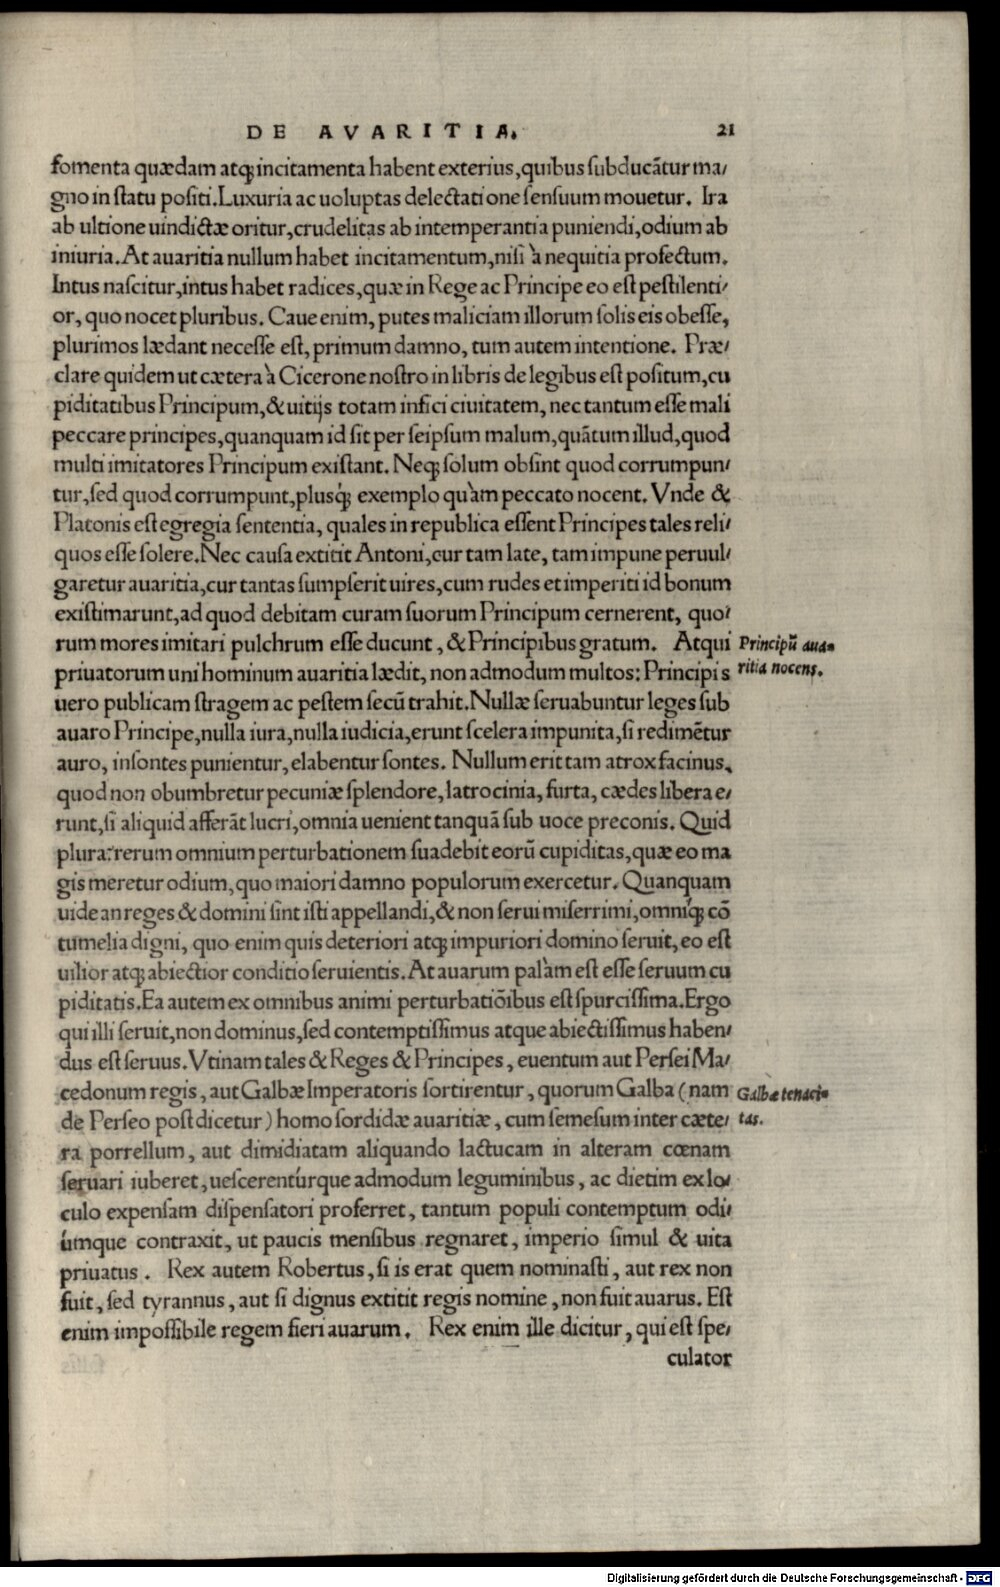 DE AVARITIA. 21
fomenta quædam atq; incitamenta habent exterius, quibus subducãtur ma/
gno in statu positi. Luxuria ac uoluptas delectatione sensuum mouetur. Ira
ab ultione uindictæ oritur, crudelitas ab intemperantia puniendi, odium ab
iniuria. At auaritia nullum habet incitamentum, nisi à nequitia profectum.
Intus nascitur, intus habet radices, quæ in Rege ac Principe eo est pestilenti/
or, quo nocet pluribus. Caue enim, putes maliciam illorum solis eis obesse,
plurimos lædant necesse est, primum damno, tum autem intentione. Præ/
clare quidem ut cætera à Cicerone nostro in libris de legibus est positum, cu
piditatibus Principum, & uitijs totam infici ciuitatem, nec tantum esse mali
peccare principes, quanquam id sit per seipsum malum, quãtum illud, quod
multi imitatores Principum existant. Neq; solum obsint quod corrumpun/
tur, sed quod corrumpunt, plusq́; exemplo quàm peccato nocent. Vnde &
Platonis est egregia sententia, quales in republica essent Principes tales reli/
quos esse solere. Nec causa extitit Antoni, cur tam late, tam impune peruul/
garetur auaritia, cur tantas sumpserit uires, cum rudes et imperiti id bonum
existimarunt, ad quod debitam curam suorum Principum cernerent, quo/
rum mores imitari pulchrum esse ducunt, & Principibus gratum. Atqui
Principũ aua=
ritia nocens.
priuatorum uni hominum auaritia lædit, non admodum multos: Principis
uero publicam stragem ac pestem secũ trahit. Nullæ seruabuntur leges sub
auaro Principe, nulla iura, nulla iudicia, erunt scelera impunita, si redimẽtur
auro, insontes punientur, elabentur sontes. Nullum erit tam atrox facinus,
quod non obumbretur pecuniæ splendore, latrocinia, furta, cædes libera e/
runt, si aliquid afferãt lucri, omnia uenient tanquã sub uoce preconis. Quid
plura? rerum omnium perturbationem suadebit eorũ cupiditas, quæ eo ma
gis meretur odium, quo maiori damno populorum exercetur. Quanquam
uide an reges & domini sint isti appellandi, & non serui miserrimi, omniq́; cõ
tumelia digni, quo enim quis deteriori atq; impuriori domino seruit, eo est
uilior atq; abiectior conditio seruientis. At auarum palàm est esse seruum cu
piditatis. Ea autem ex omnibus animi perturbatiõibus est spurcissima. Ergo
qui illi seruit, non dominus, sed contemptissimus atque abiectissimus haben/
dus est seruus. Vtinam tales & Reges & Principes, euentum aut Persei Ma/
cedonum regis, aut Galbæ Imperatoris sortirentur, quorum Galba (nam
Galbæ tenaci=
tas.
de Perseo post dicetur) homo sordidæ auaritiæ, cum semesum inter cæte/
ra porrellum, aut dimidiatam aliquando lactucam in alteram cœnam
seruari iuberet, uescerentúrque admodum leguminibus, ac dietim ex lo/
culo expensam dispensatori proferret, tantum populi contemptum odi/
úmque contraxit, ut paucis mensibus regnaret, imperio simul & uita
priuatus. Rex autem Robertus, si is erat quem nominasti, aut rex non
fuit, sed tyrannus, aut si dignus extitit regis nomine, non fuit auarus. Est
enim impossibile regem fieri auarum. Rex enim ille dicitur, qui est spe/
culator
Digitalisierung gefördert durch die Deutsche Forschungsgemeinschaft - DFG